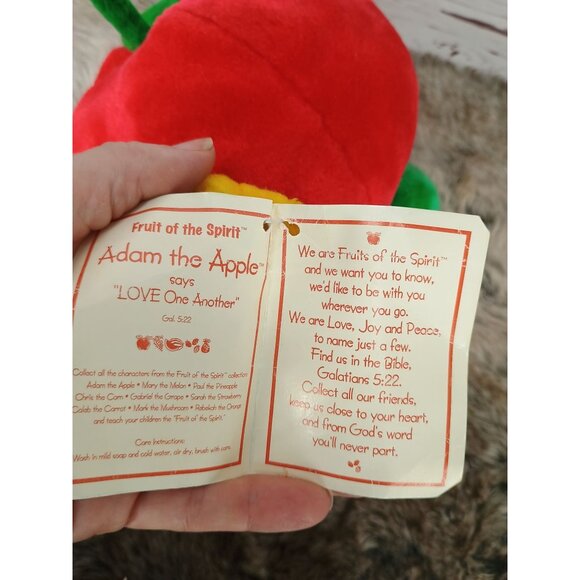 Fruit of the Spirit™
Adam the Apple™
says
"LOVE One Another"
Gal. 5:22
Collect all the characters from the Fruit of the Spirit™ collection
Adam the Apple • Mary the Melon • Paul the Pineapple
Chris the Corn • Gabriel the Grape • Sarah the Strawberry
Caleb the Carrot • Mark the Mushroom • Rebekah the Orange
and teach your children the "Fruit of the Spirit."
Care Instructions:
Wash in mild soap and cold water, air dry, brush with care.
We are Fruits of the Spirit™
and we want you to know,
we'd like to be with you
wherever you go.
We are Love, Joy and Peace,
to name just a few.
Find us in the Bible,
Galatians 5:22.
Collect all our friends,
keep us close to your heart,
and from God's word
you'll never part.